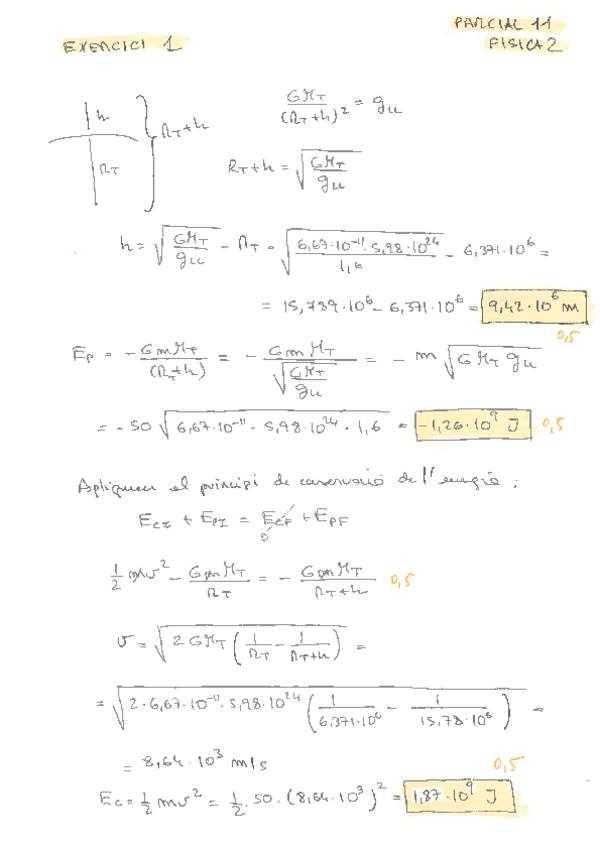 PARCIAL 11
EXERCICI 1
FISICA 2
h
R_T
R_T+h
GM_T/(R_T+h)² = g_LL
R_T+h = √(GM_T/g_LL)
h = √(GM_T/g_LL) - R_T = √(6,67·10⁻¹¹·5,98·10²⁴/1,6) - 6,371·10⁶ =
= 15,789·10⁶ - 6,371·10⁶ = 9,42·10⁶ m
0,5
E_P = - GmM_T/(R_T+h) = - GmM_T/√(GM_T/g_LL) = - m√(GM_T g_LL)
= -50 √(6,67·10⁻¹¹·5,98·10²⁴·1,6) = -1,26·10⁹ J 0,5
Apliquem el principi de conservació de l'energia:
E_CI + E_PI = E_CF + E_PF
0
1/2 mv² - GmM_T/R_T = - GmM_T/(R_T+h) 0,5
v = √(2GM_T (1/R_T - 1/(R_T+h))) =
= √(2·6,67·10⁻¹¹·5,98·10²⁴ (1/6,371·10⁶ - 1/15,78·10⁶)) =
= 8,64·10³ m/s
0,5
E_C = 1/2 mv² = 1/2·50·(8,64·10³)² = 1,87·10⁹ J